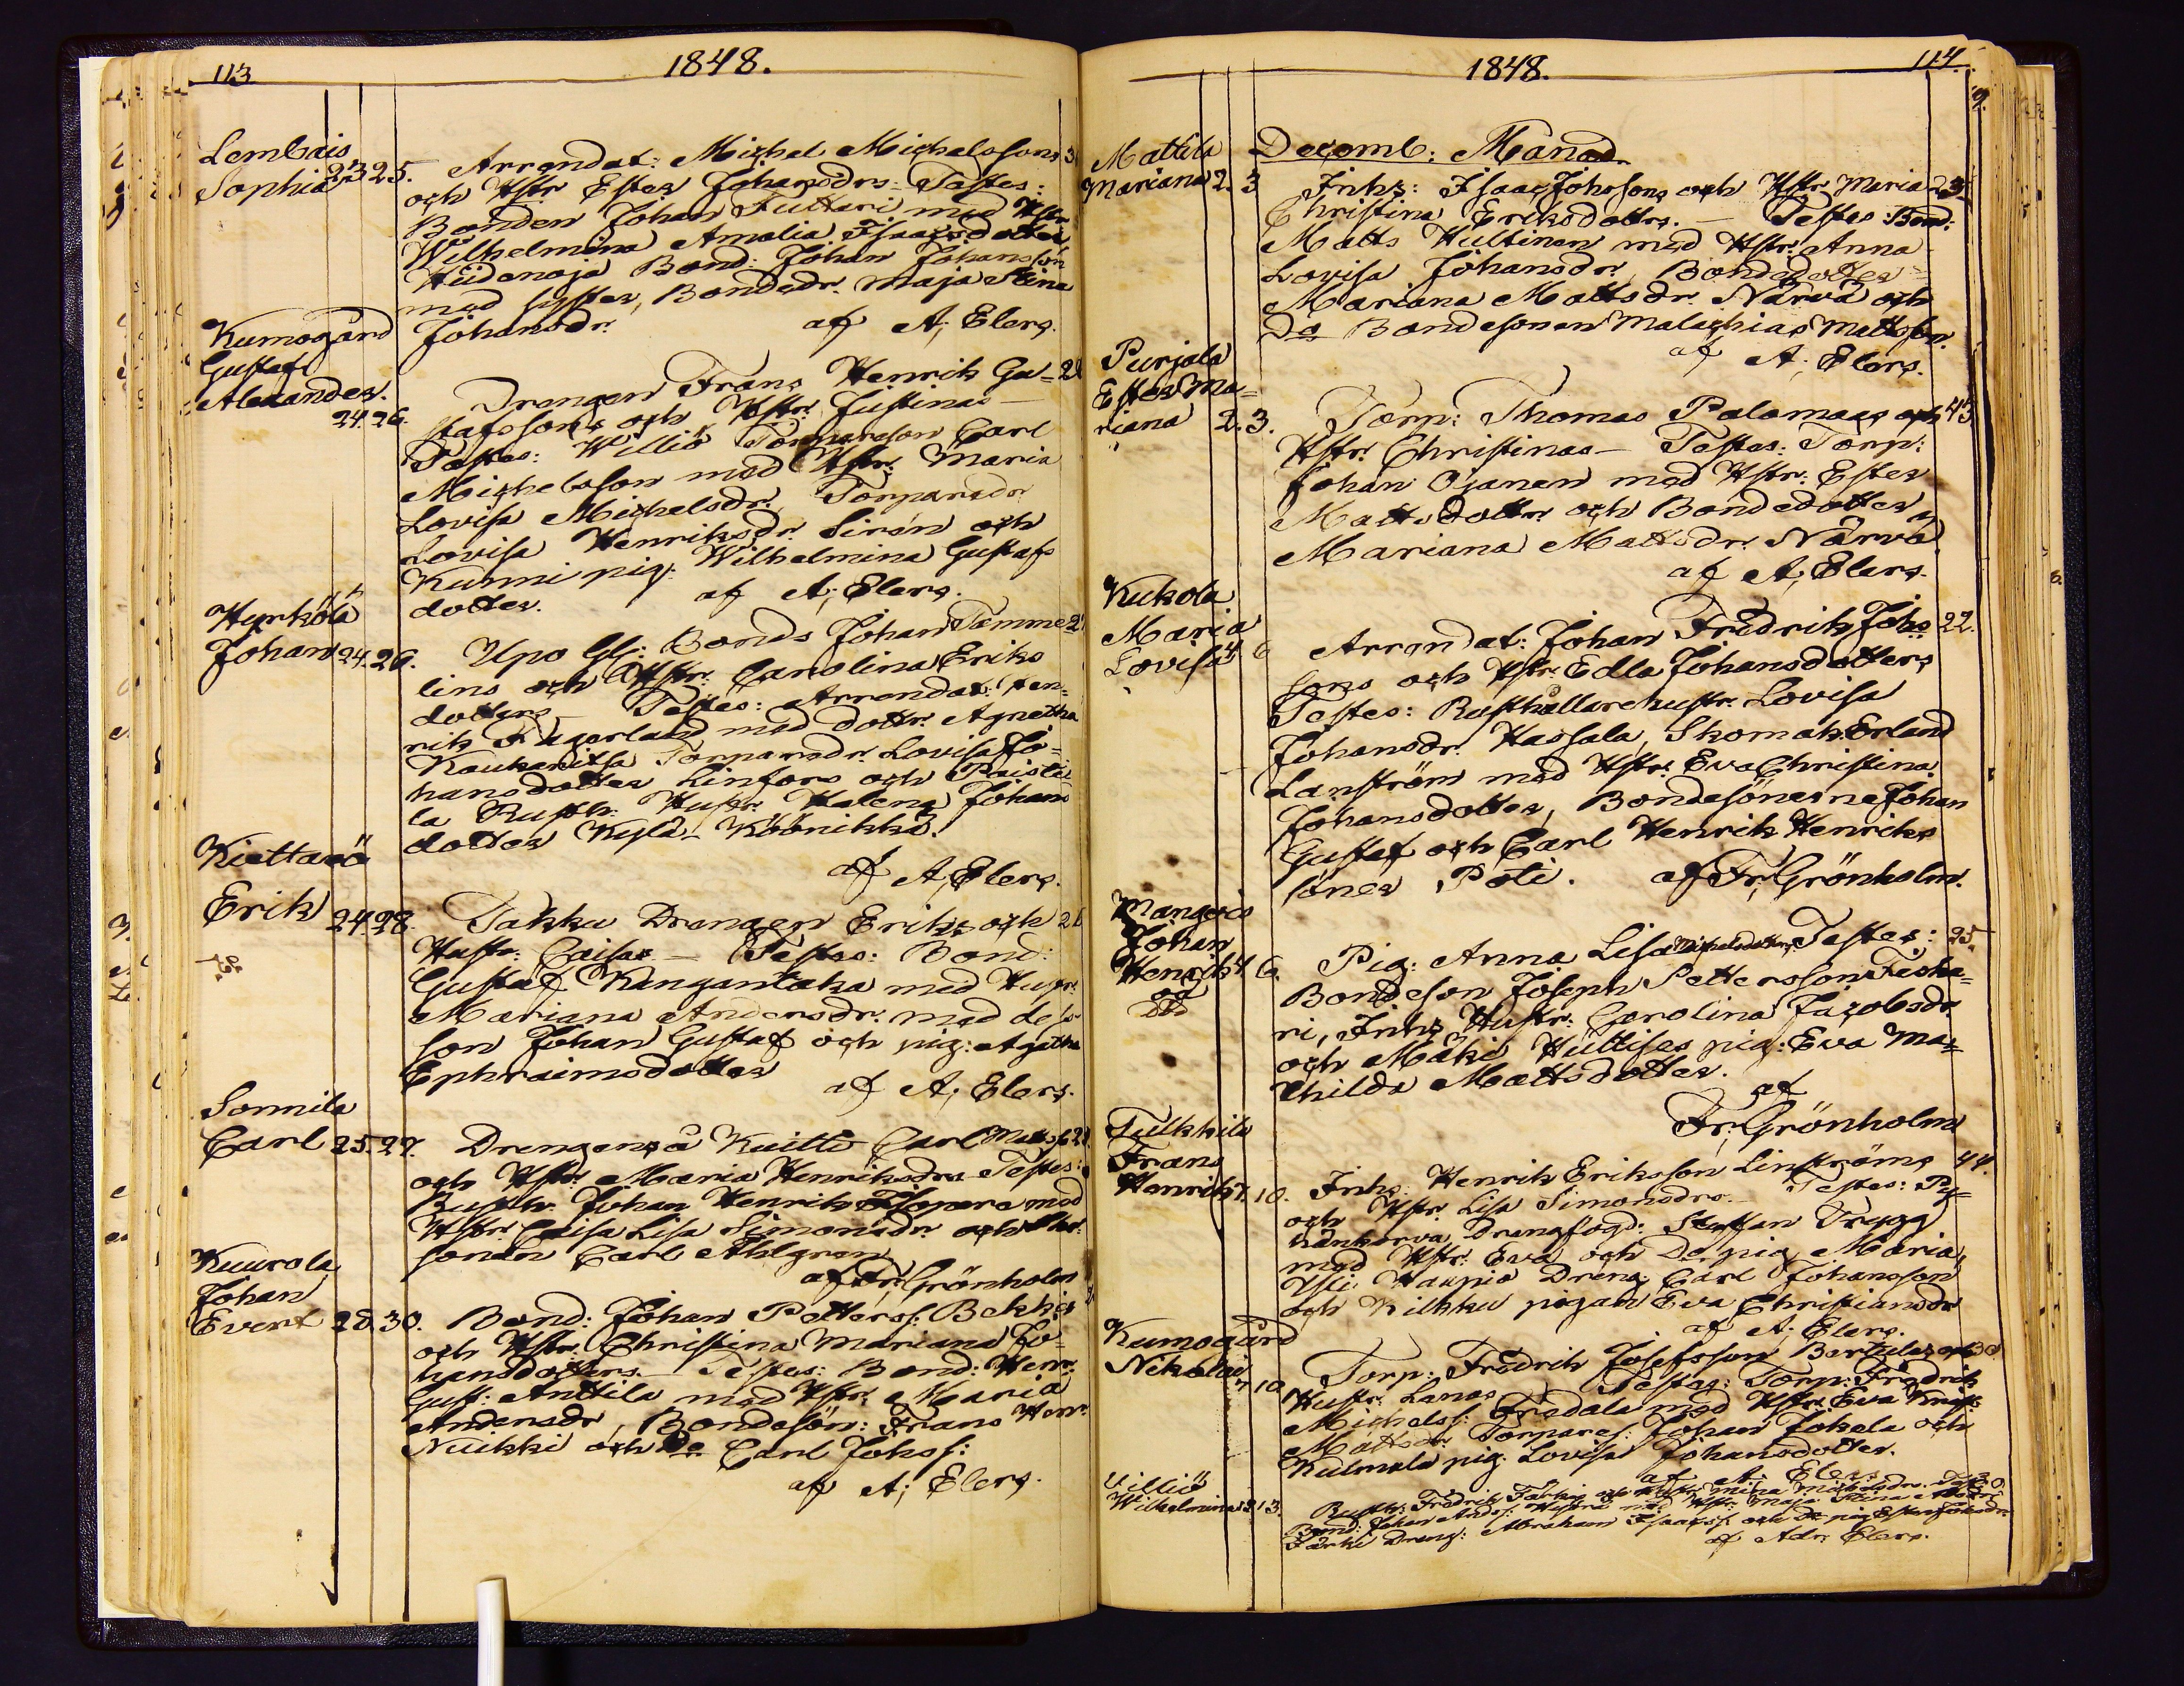 113
1848.
Lembois
Sophia 23 25. Arrendat: Michel Michelssons
och Hstr Ester Johansdrs. Testes:
Bonden Johan Tuttari med Hstr
Wilhelmina Amalia Isaacsdotter,
Hiidenoja Bond: Johan Johansson
med syster, Bondedr. Maja Stina
Johansdr. af A; Elers.
Kumogård
Gustaf
Alexander.
24. 26. Drengen Frans Henrik Gu=
stafssons och Hstr. Justinas —
Testes: Williö Torpareson Carl
Michelsson med Hstr. Maria
Lovisa Michelsdr. Torparedr
Lovisa Henriksdr. Sirén och
Kunni pig: Wilhelmina Gustafs
dotter. af A; Elers.
Hyrköla
Johan 24. 26. Upo Gl: Bonds Johan Tamme
lins och Hstr. Carolina Eriks
dotters — Testes: Arrendat: Hen=
rik Fagerlund med dottr. Agnetha
Kaukaritsa Torparedr. Lovisa Jo=
hansdotter Linfors och Paisti
la Rusth: Hustr. Helena Johans
dotter Kylä-Köönikkä.
af A; Elers.
Kiettarö
Erik 24 28. Takku Drengen Eriks och
Hustr: Caisas — Testes: Bond:
Gustaf Kangantaka med Hustr.
Mariana Andersdr. med dess
son Johan Gustaf och pig: Agatha
Ephraimsdotter
af A; Elers.
Sonnila
Carl 25. 27. Drengens å Kuitti Carl Matss
och Hstr. Maria Henriksdrs Testes:
Rusth: Johan Henrik Isopere med
Hstr. Caisa Lisa Simonsdr. och
sonen Carl Ahlgren
af Fr; Grönholm
Kuurola
Johan
Evert 28. 30. Bond: Johan Petterss: Bekkis
och Hstr. Christina Mariana Jo=
hansdotters. — Testes: Bond: Henr:
Gust: Anttila med Hstr. Maria
Andersdr, Bondesön: Frans Henr:
Nuikki och Do Carl Johss:
af A; Elers.
1848.
114.
Decemb: Månad.
Mattila
Mariana 2. 3 Inhs: Isaac Johssons och Hstr. Maria 23
Christina Eriksdotters. — Testes: Bond:
Matts Hultinen med Hstr. Anna
Lovisa Johansdr. Bondedotter
Mariana Mattsdr. Närvä och
Do Bondesonen Malachias Mattsson.
af A; Elers.
Purjala
Ester Ma=
riana 2. 3. Torp: Thomas Palomaas och 45
Hstr. Christinas — Testes: Torp:
Johan Ojanen med Hstr. Ester
Mattsdottr. och Bondedotter
Mariana Mattsdr. Närvä
af A; Elers.
Kukola
Maria
Lovisa 4 6 Arrendat: Johan Fredrik Johs 22.
sons och Hstr. Edla Johansdotters
Testes: Rusthållarehustr. Lovisa
Johansdr. Hassala, Skomak Erland
Lanström med Hstr. Eva Christina
Johansdotter, Bondesönerne Johan
Gustaf och Carl Henrik Henriks
söner Poti. af Fr; Grönholm.
Mangois
Johan
Henrik 4. 6. Pig: Anna Lisa Michelsdotters, Testes: 25.
oä
Bondeson Joseph Pettersson Teska=
ri, Inhs Hustr. Carolina Jacobsdr
och Mäki Huttises pig: Eva Ma=
thilda Mattsdotter.
af
Fr; Grönholm
Tulkkila
Frans
Henrik 7. 10. Inhs: Henrik Eriksson Linströms 44.
och Hstr. Lisa Simonsdrs. — Testes: Py=
hänkorva Drengfogd: Staffan Trygg
med Hstr. Eva och Do pig Maria,
Ylli Haupio Dreng Carl Johansson
och Kilkku pigan Eva Christiansdr
af A; Elers.
Kumogård
Nikolai 7 10 Torp: Fredrik Josefsson Bertulas och 30
Hustr. Lenas Testes: Torp: Fredrik
Michelss: Fredala med Hstr. Eva Krist:
Mattsdr. Torpares: Johan Jokela och
Kulmala pig: Lovisa Johansdotter.
af A; Elers
Villiö
Wilhelmina 12 13. Rusth: Fredrik Färkis och Hustr. Mina Michelsdrs. Test: 30.
Bond: Johan Anders: Hustra med Hstr. Maja Stina
Färki Dreng: Abraham Isaacss: och Do pig Ester Johsdr.
af Adr. Elers.